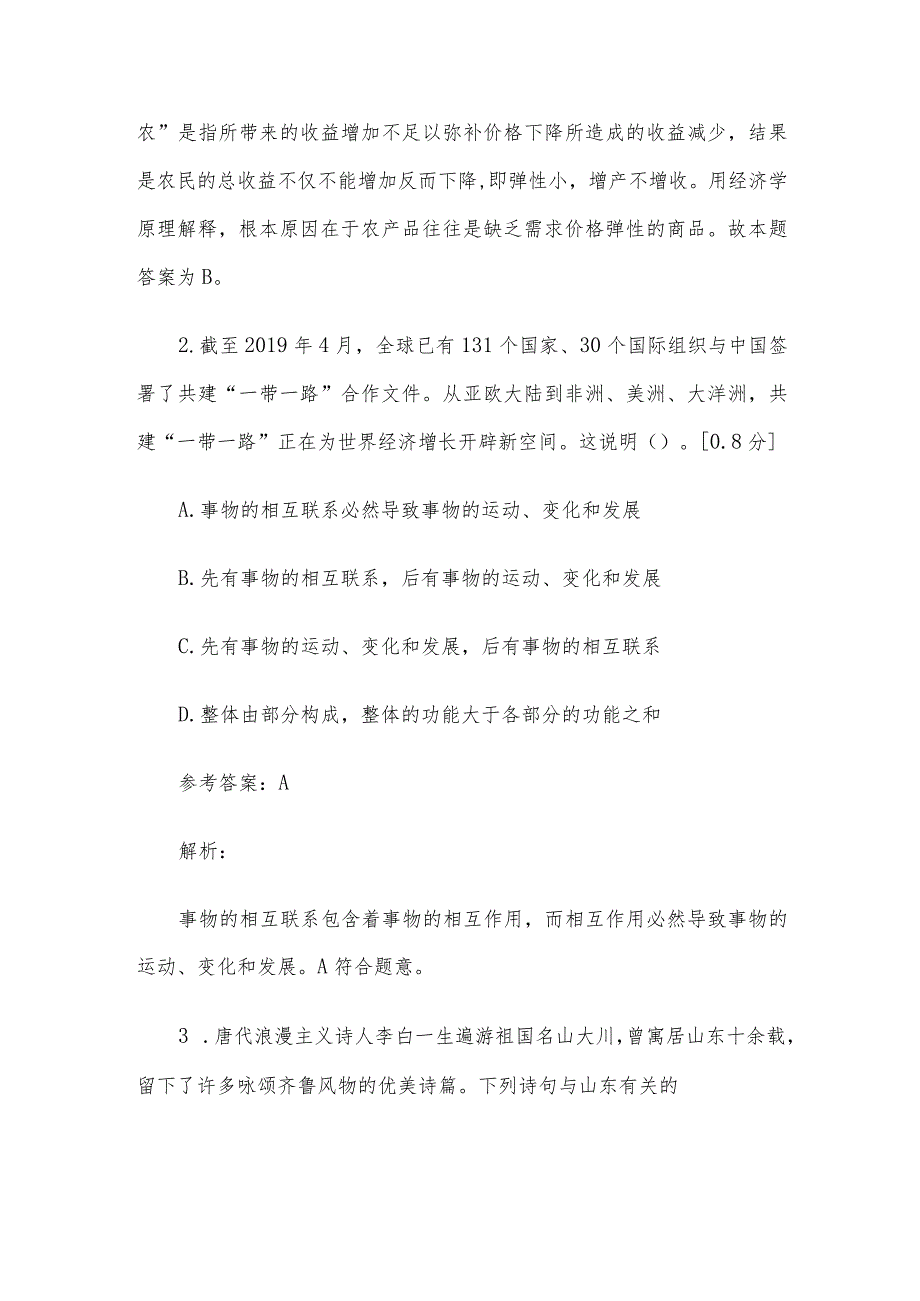 农”是指所带来的收益增加不足以弥补价格下降所造成的收益减少，结果
是农民的总收益不仅不能增加反而下降,即弹性小，增产不增收。用经济学
原理解释，根本原因在于农产品往往是缺乏需求价格弹性的商品。故本题
答案为 B。
2.截至 2019 年 4 月，全球已有 131 个国家、30 个国际组织与中国签
署了共建“一带一路”合作文件。从亚欧大陆到非洲、美洲、大洋洲，共
建“一带一路”正在为世界经济增长开辟新空间。这说明（）。[0.8 分]
A.事物的相互联系必然导致事物的运动、变化和发展
B.先有事物的相互联系，后有事物的运动、变化和发展
C.先有事物的运动、变化和发展，后有事物的相互联系
D.整体由部分构成，整体的功能大于各部分的功能之和
参考答案：A
解析：
事物的相互联系包含着事物的相互作用，而相互作用必然导致事物的
运动、变化和发展。A 符合题意。
3 .唐代浪漫主义诗人李白一生遍游祖国名山大川，曾寓居山东十余载，
留下了许多咏颂齐鲁风物的优美诗篇。下列诗句与山东有关的